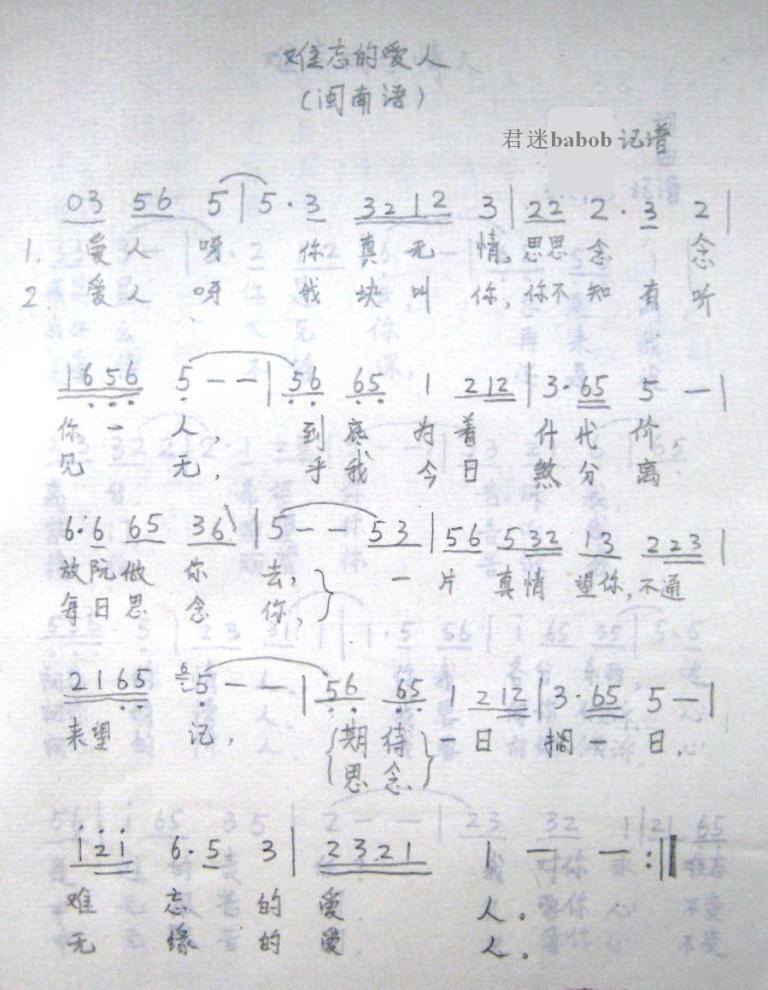 难忘的爱人
（闽南语）
君迷babob 记谱
03 56 5 | 5 · 3 3212 3 | 22 2 · 3 2 |
1. 爱人 呀 你 真 无 情。思思 念 念
2. 爱人 呀 我 块 叫 你，你不 知 有 听
1656 5 － － | 56 65 1 212 | 3 · 65 5 － |
你 一 人， 到 底 为 着 什 代 价
见 无， 乎 我 今 日 煞 分 离
6·6 65 36 | 5 － － 53 | 56 532 13 223 |
放阮做 你 去， 一 片 真情 望你，不通
每日思 念 你，
2165 5 － － | 56 65 1 212 | 3 · 65 5 － |
来望 记， 期 待 一 日 搁 一 日，
思 念
i2i 6·5 3 | 2321 1 － － :‖
难 忘 的 爱 人。
无 缘 的 爱 人。